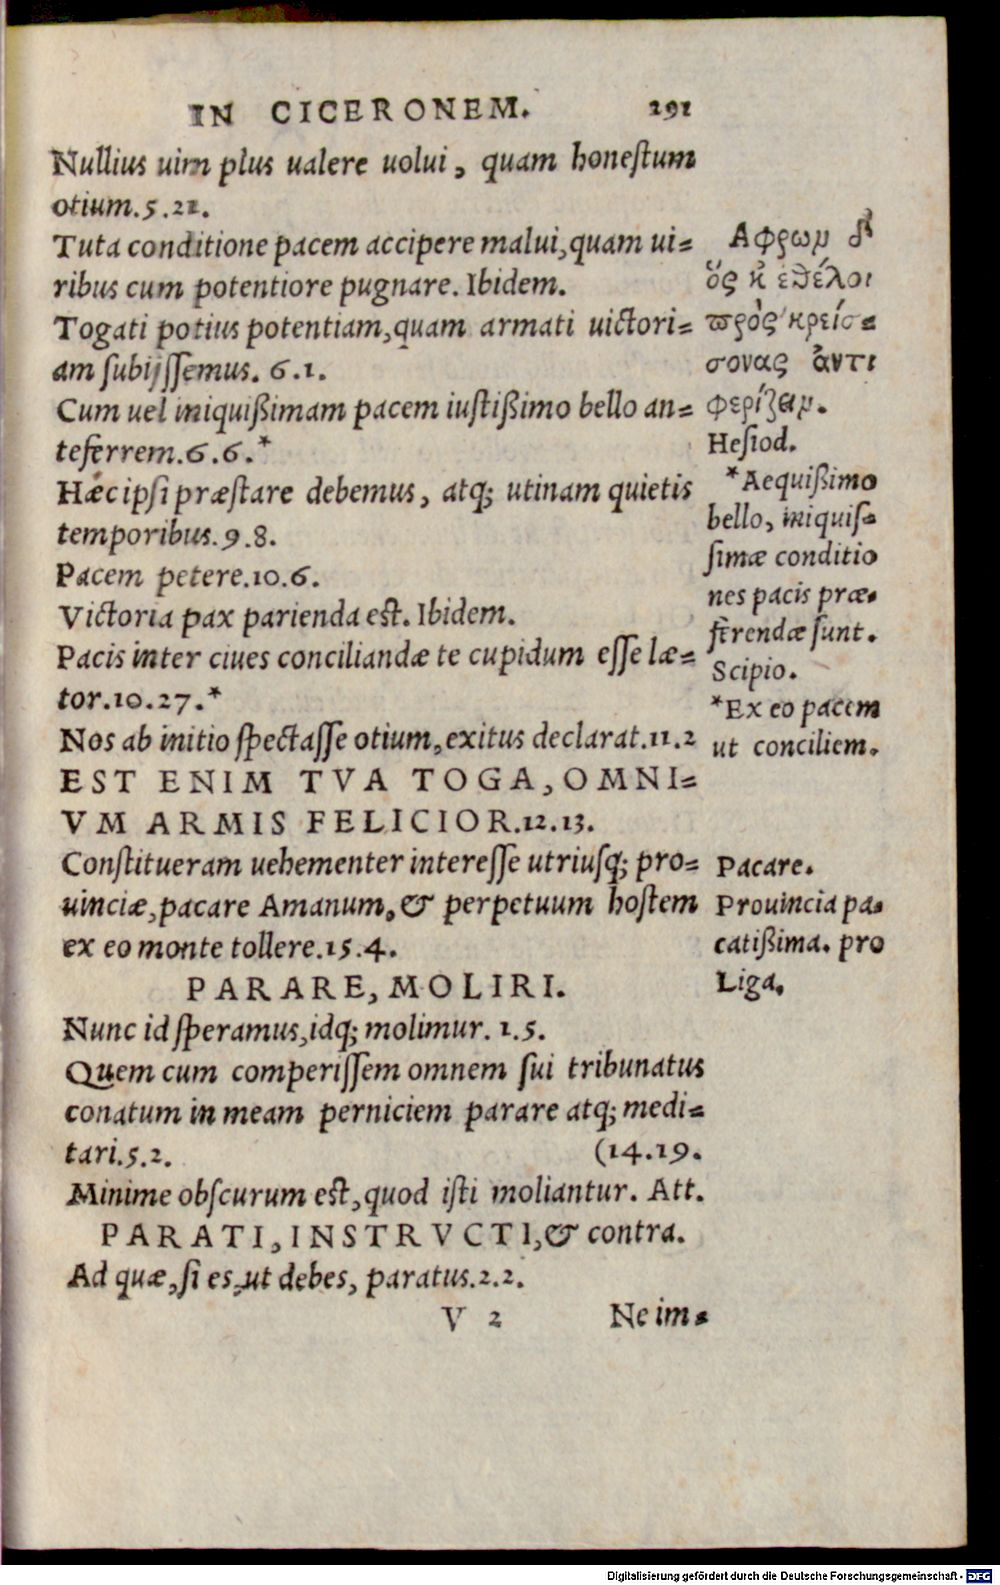 IN CICERONEM. 291
Nullius uim plus ualere uolui, quam honeſtum
otium.5.21.
Tuta conditione pacem accipere malui,quam ui=
ribus cum potentiore pugnare. Ibidem.
Togati potius potentiam,quam armati uictori=
am ſubijſſemus. 6.1.
Cum uel iniquißimam pacem iuſtißimo bello an=
teferrem.6.6.*
Hæc ipſi præſtare debemus, atq; utinam quietis
temporibus.9.8.
Pacem petere.10.6.
Victoria pax parienda eſt. Ibidem.
Pacis inter ciues conciliandæ te cupidum eſſe læ=
tor.10.27.*
Nos ab initio ſpectaſſe otium,exitus declarat.11.2
EST ENIM TVA TOGA,OMNI=
VM ARMIS FELICIOR.12.13.
Conſtitueram uehementer intereſſe utriuſq; pro=
uinciæ,pacare Amanum,& perpetuum hoſtem
ex eo monte tollere.15.4.
PARARE,MOLIRI.
Nunc id ſperamus,idq; molimur. 1.5.
Quem cum comperiſſem omnem ſui tribunatus
conatum in meam perniciem parare atq; medi=
tari.5.2. (14.19.
Minime obſcurum eſt,quod iſti moliantur. Att.
PARATI,INSTRVCTI,& contra.
Ad quæ,ſi es,ut debes, paratus.2.2.
V 2 Ne im=
Αφρωμ δ'
ὅς κ' εθέλοι
πρὸς κρείσ=
σονας ἀντι
φερίζειμ.
Heſiod.
*Aequißimo
bello, iniquiſ=
ſimæ conditio
nes pacis præ=
ferendæ ſunt.
Scipio.
*Ex eo pacem
ut conciliem.
Pacare.
Prouincia pa=
catißima. pro
Liga.
Digitalisierung gefördert durch die Deutsche Forschungsgemeinschaft - DFG